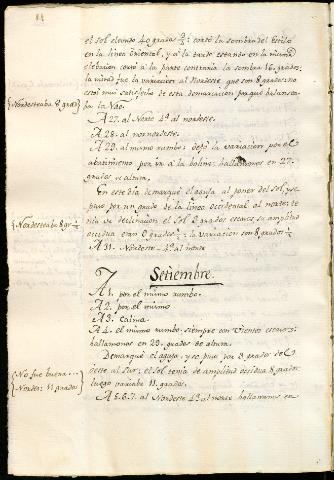 el sol elevado 40 grados 2/3: cortó la sombra del Estilo
en la linea oriental, y a la tarde estando en la misma
elebacion cortó a la parte contraria la sombra 16 grados;
la mitad fue la variacion al Nordeste que son 8 grados: no
estoi mui satisfecho de esta demarcacion porque balansea-
(Nordesteaba 8 grados) ba la Náo.
A 27. al Norte 4ª al nordeste.
A 28. al nornordeste.
A 29. al mismo rumbo; dejo la variacion por el
abatimiento por ir a la bolina: hallamonos en 27.
grados de altura.
En este dia demarqué el aguja al poner del sol, y se
puso por un grado de la linea occidental al norte: te-
(Nordesteaba 8 gr. 1/2) nia de declinacion el Sol 8 grados escasos, su amplitud
occidua eran 9 grados 1/2: la Variacion son 8 grados 1/2
A 31. Nordeste 4ª al norte
Setiembre.
A 1. por el mismo rumbo.
A 2. por el mismo
A 3. Calma.
A 4. el mismo rumbo, siempre con vientos escasos:
hallamonos en 29. grados de altura.
Demarqué el aguja, y se puso por 3 grados del
(No fue buena...
Nordest: 11 grados) oeste al Sur: el sol tenia de amplitud occidua 8 grados
luego variaba 11. grados.
A 5. 6. 7. al Nordeste 4ª al norte hallamonos en